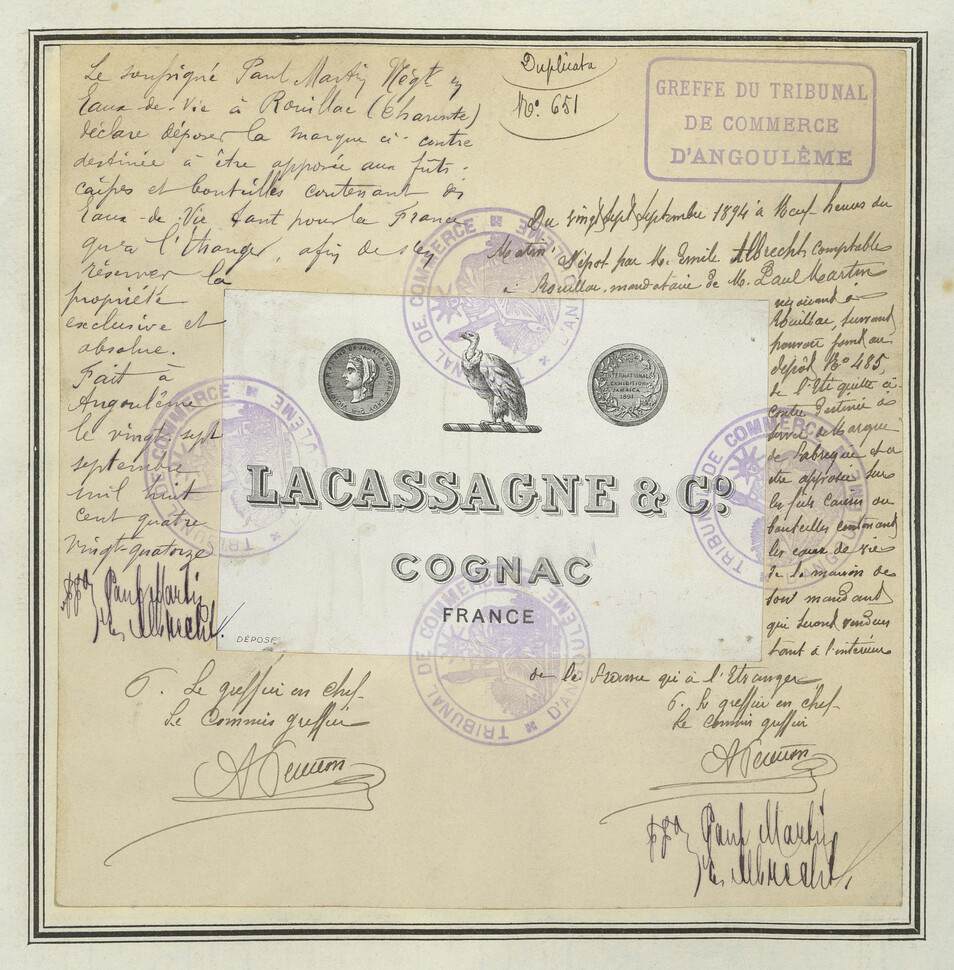 Le soussigné Paul Martin Négt en
Eaux-de-Vie à Rouillac (Charente)
déclare déposer la marque ci-contre
destinée à être apposée aux fûts-
caisses et bouteilles contenant des
Eaux-de-Vie tant pour la France
qu'à l'Etranger, afin de s'en
réserver la
propriété
exclusive et
absolue.
Fait à
Angoulême
le vingt sept
septembre
mil huit
cent quatre
vingt-quatorze
ppon Paul Martin
Albrecht
Duplicata
No. 651
GREFFE DU TRIBUNAL
DE COMMERCE
D'ANGOULÊME
Du vingt sept septembre 1894 à Neuf heures du
Matin Dépôt par M. Emile Albrecht comptable
à Rouillac, mandataire de M. Paul Martin
négociant à
Rouillac, suivant
pouvoir joint au
dépôt No 485,
de l'Etiquette ci-
contre destinée à
servir de Marque
de Fabrique et à
être apposée sur
les fûts caisses ou
bouteilles contenant
les eaux de vie
de la maison de
son mandant
qui seront vendues
tant à l'intérieur
de la France qu'à l'Etranger
INTERNATIONAL
EXHIBITION
JAMAICA
1891
LACASSAGNE & Co.
COGNAC
FRANCE
DÉPOSÉ
TRIBUNAL DE COMMERCE D'ANGOULÊME
TRIBUNAL DE COMMERCE D'ANGOULÊME
TRIBUNAL DE COMMERCE D'ANGOULÊME
TRIBUNAL DE COMMERCE D'ANGOULÊME
Le greffier en chef
Le Commis greffier
Le greffier en chef
Le commis greffier
ppon Paul Martin
Albrecht